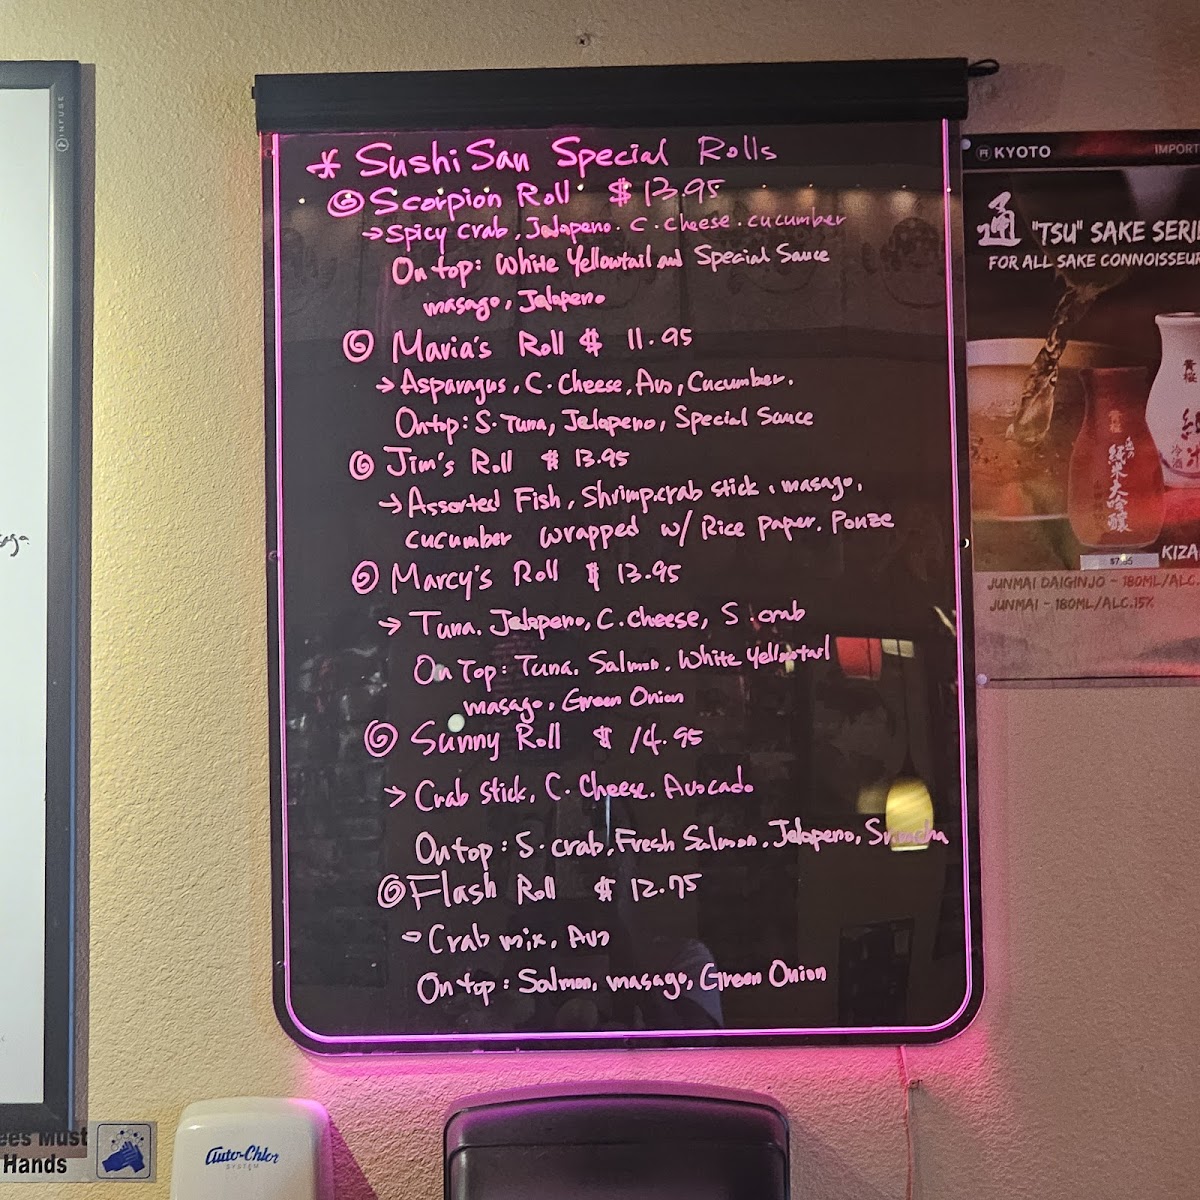 * Sushi San Special Rolls
Scorpion Roll $13.95
→ Spicy Crab, Jalapeno. C. Cheese. cucumber
On top: White Yellowtail and Special Sauce
masago, Jalapeno
Maria's Roll $ 11.95
→ Asparagus, C. Cheese, Avo, Cucumber.
On top: S. Tuna, Jalapeno, Special Sauce
Jim's Roll $ 13.95
→ Assorted Fish, Shrimp, crab stick, masago,
cucumber wrapped w/ Rice paper. Ponze
Marcy's Roll $ 13.95
→ Tuna. Jalapeno, C. cheese, S. crab
On Top: Tuna. Salmon. White Yellowtail
masago, Green Onion
Sunny Roll $ 14.95
→ Crab Stick, C. Cheese. Avocado
On top: S. crab, Fresh Salmon, Jalapeno, Sriracha
Flash Roll $ 12.75
- Crab mix, Avo
On top: Salmon, masago, Green Onion
INFUSE
KYOTO
IMPORT
通 "TSU" SAKE SERI
FOR ALL SAKE CONNOISSEUR
純米大吟醸
冷酒
$7.95
KIZA
JUNMAI DAIGINJO - 180ML/ALC.
JUNMAI - 180ML/ALC.15%
ees Must
Hands
Auto-Chlor
SYSTEM